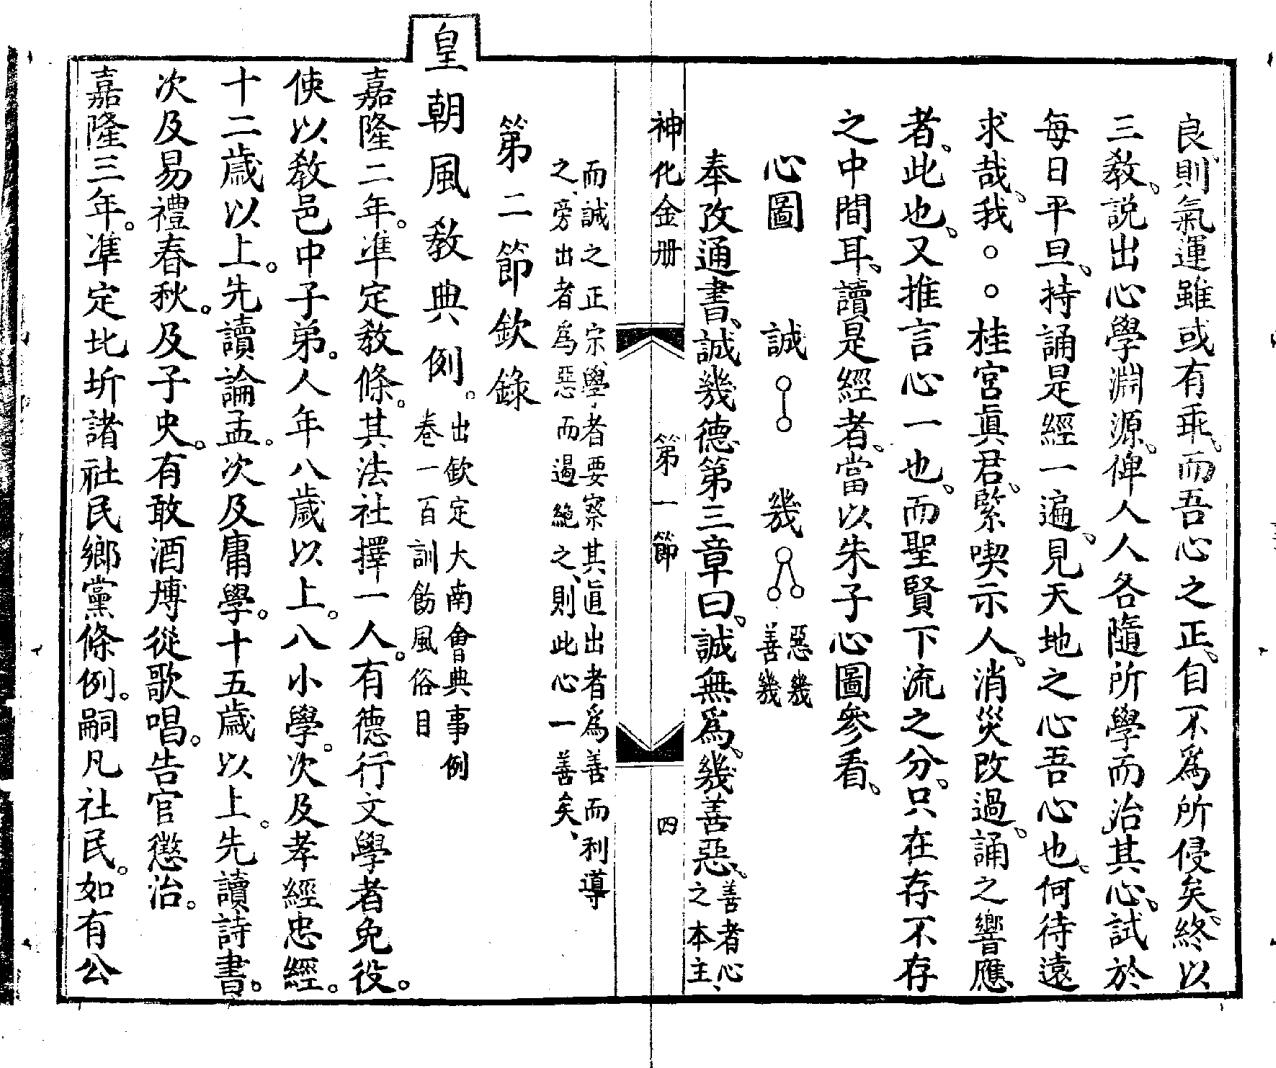 良則氣運雖或有乖、而吾心之正、自不爲所侵矣、終以
三教、說出心學淵源、俾人人各隨所學而治其心、試於
每日平旦、持誦是經一遍、見天地之心吾心也、何待遠
求哉、我○○桂宮眞君、緊喫示人、消災改過、誦之響應
者、此也、又推言心一也、而聖賢下流之分、只在存不存
之中間耳、讀是經者、當以朱子心圖參看、
心圖 誠 幾 惡幾 善幾
奉攷通書、誠幾德第三章曰、誠無爲、幾善惡、善者心之本主、
神化金册 第一節 四
而誠之正宗、學者要察其眞出者爲善而利導
之旁出者爲惡而遏絶之、則此心一善矣、
第二節欽錄
皇朝風教典例。出欽定大南會典事例
卷一百訓飭風俗目
嘉隆二年。準定教條。其法社擇一人。有德行文學者免役。
使以教邑中子弟。人年八歲以上。八小學。次及孝經忠經。
十二歲以上。先讀論孟。次及庸學。十五歲以上。先讀詩書。
次及易禮春秋。及子史。有敢酒博從歌唱。告官懲治。
嘉隆三年。準定北圻諸社民鄉黨條例。嗣凡社民。如有公